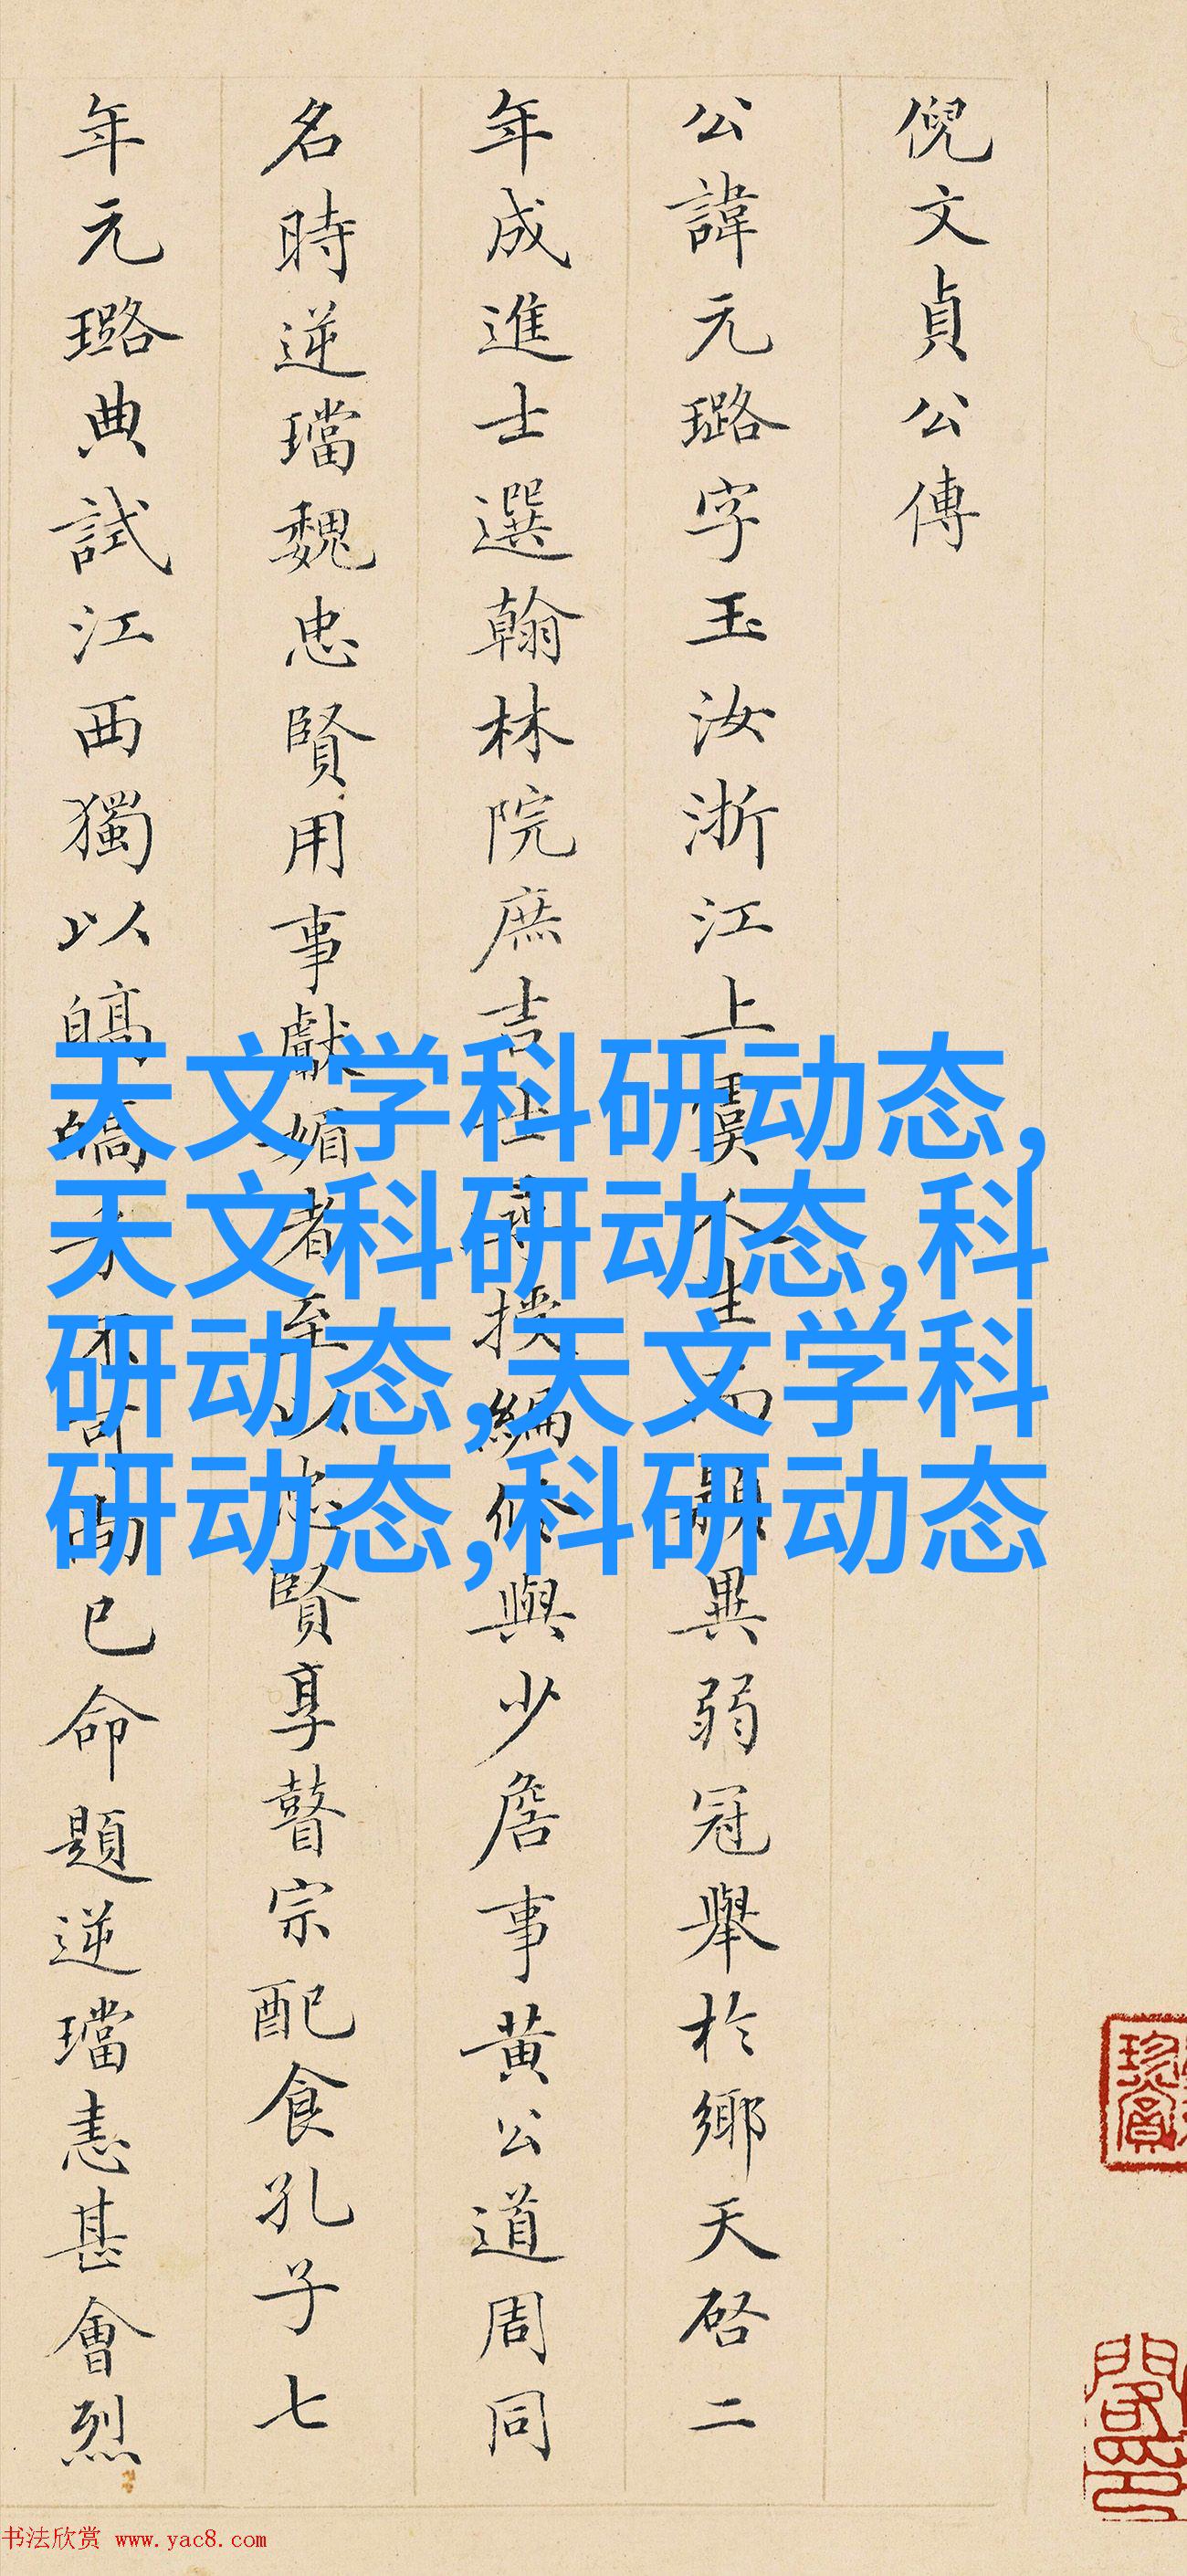 倪文貞公傳
公諱元璐字玉汝浙江上虞人生而異弱冠舉於鄉天啓二
年成進士選翰林院庶吉士尋授編修與少詹事黃公道周同
名時逆璫魏忠賢用事獻媚者至以忠賢享瞽宗配食孔子七
年元璐典試江西獨以皜皜乎不可尚已命題逆璫恚甚會烈
天文学科研动态,
天文科研动态,科
研动态,天文学科
研动态,科研动态
珍賞
书法欣赏 www.yac8.com